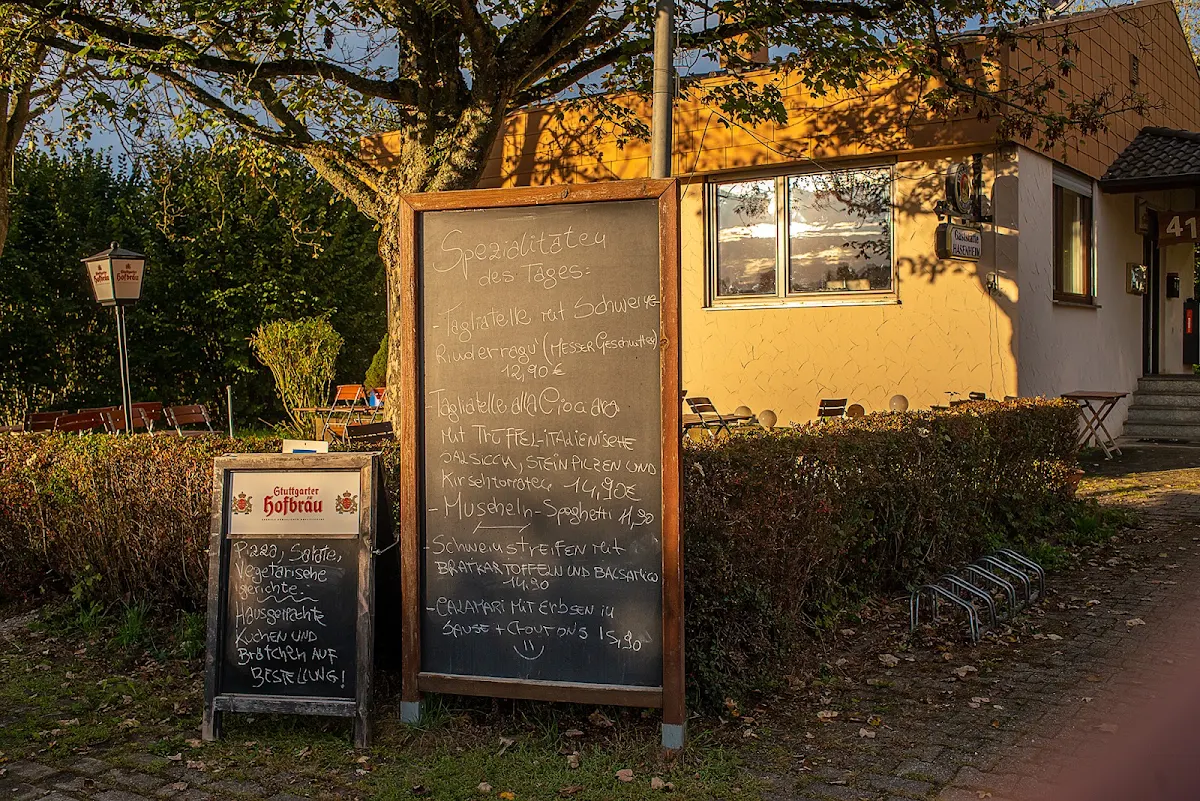 Spezialitäten
des Tages:
- Tagliatelle mit Schweine
Rinderragu' (MESSER Geschnitten)
12,90€
- Tagliatelle alla Ciociara
Mit TRÜFFEL-ITALIENISCHE
SALSICCIA, STEINPILZEN UND
Kirschtomaten 14,90€
- Muscheln-Spaghetti 11,90
- Schweinstreifen mit
BRATKARTOFFELN UND BALSAMICO
14,90
- CALAMARI MIT Erbsen in
SAUSE + CROUTONS 15,90
Stuttgarter
Hofbräu
Pizza, Salate,
Vegetarische
gerichte.
Hausgemachte
Kuchen UND
Brötchen AUF
BESTELLUNG!
Hofbräu
Hofbräu
Gaststätte
HASENHEIM
41